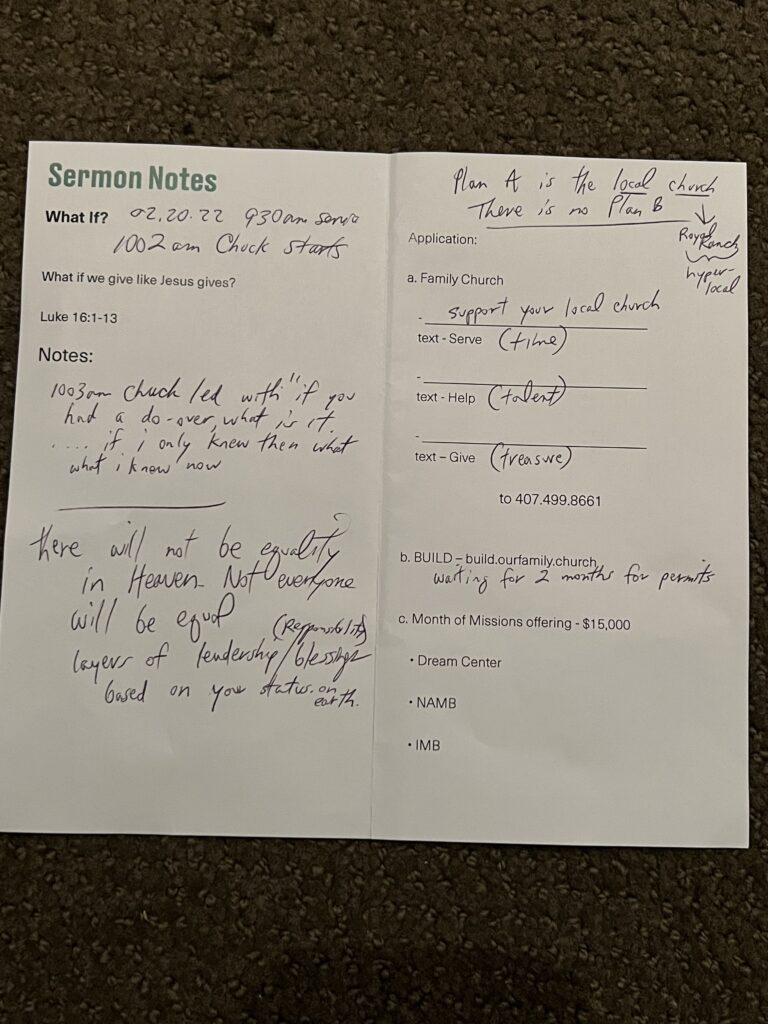 Sermon Notes
What If? 02.20.22 930am servic
1002am Chuck starts
What if we give like Jesus gives?
Luke 16:1-13
Notes:
1003am Chuck led with "if you
had a do-over, what is it.
.... if i only knew then what
what i know now
there will not be equality
in Heaven. Not everyone
will be equal (Responsibility)
layers of leadership/blessings
based on your status on
earth.
Plan A is the local church
There is no Plan B
Royal Ranch
hyper-
local
Application:
a. Family Church
- support your local church
text - Serve (time)
-
text - Help (talent)
-
text – Give (treasure)
to 407.499.8661
b. BUILD – build.ourfamily.church
waiting for 2 months for permits
c. Month of Missions offering - $15,000
• Dream Center
• NAMB
• IMB